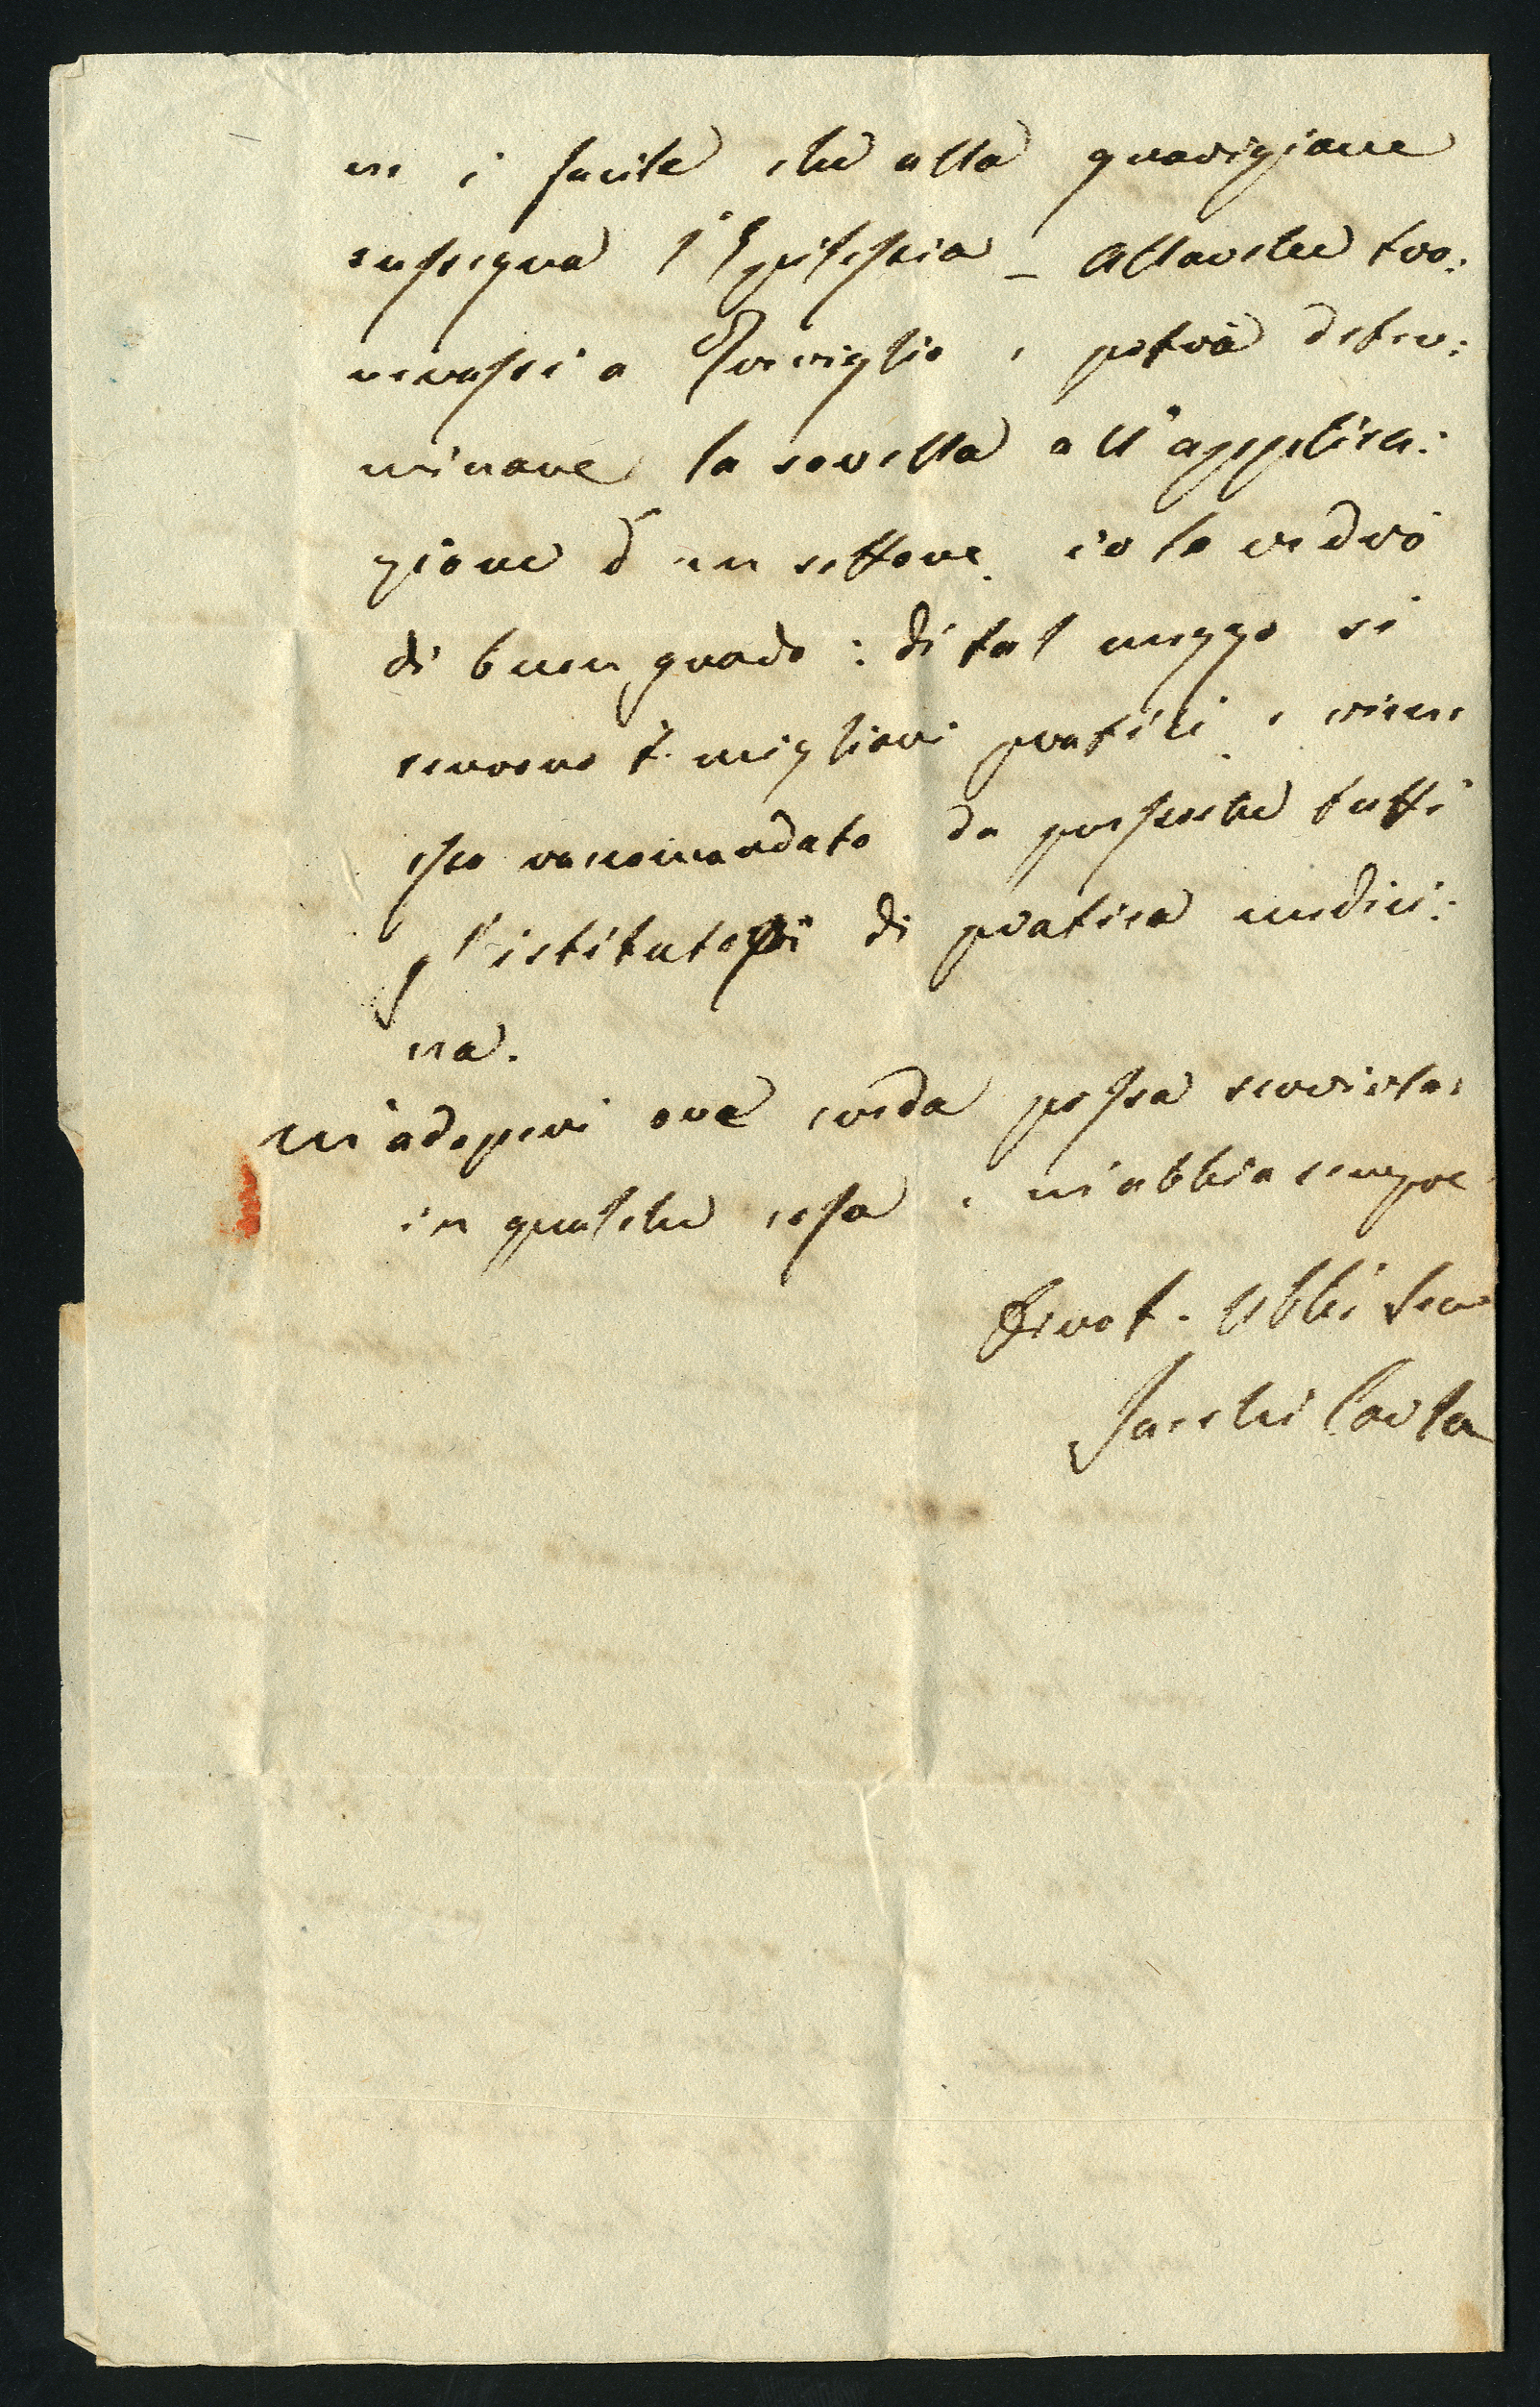 ne è facile che alla guarigione
sussegua l'Epilessia - Allorche tro:
verassi a Treviglio, e potrà deter:
minare la sorella all'applica:
zione d'un settone, io lo vedrò
di buon grado: di tal mezzo si
servono i migliori pratici, e viene
esso raccomandato da pressoche tutti
gl'istitutori di pratica medici:
na.
M'adoperi ove creda possa servirla
in qualche cosa, e m'abbia sempre
Divot. Obbli Ser
Sacchi Carlo